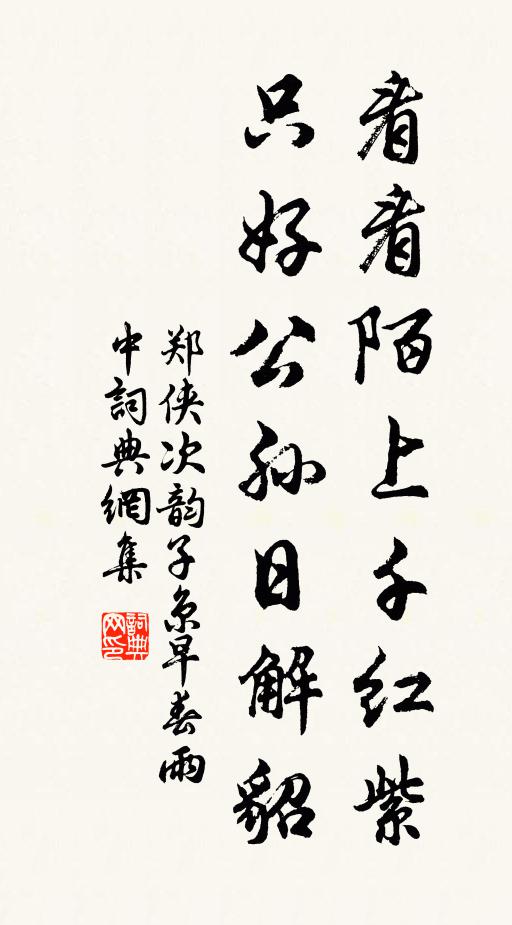 看看陌上千红紫
只好公孙日解貂
郑侠次韵子京早春雨
中詞典網集
詞典网印